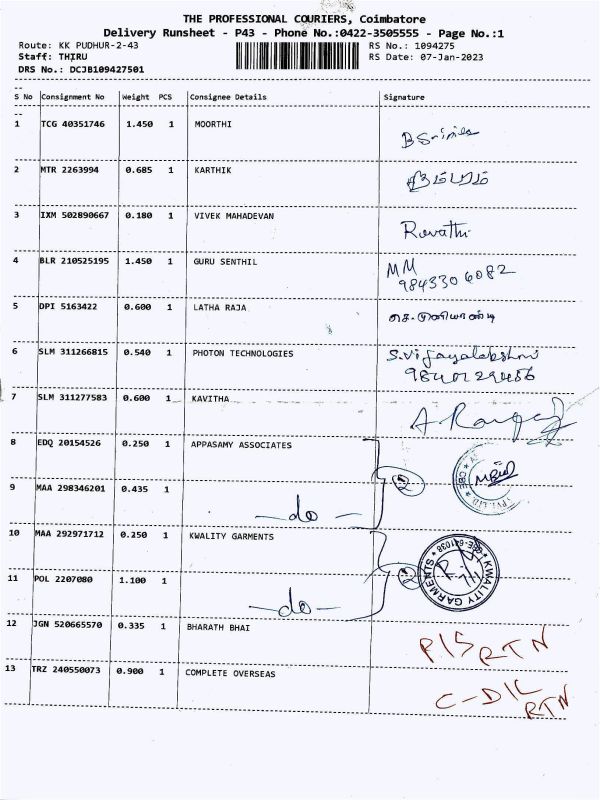 THE PROFESSIONAL COURIERS, Coimbatore
Delivery Runsheet - P43 - Phone No.:0422-3505555 - Page No.:1
Route: KK PUDHUR-2-43 RS No.: 1094275
Staff: THIRU RS Date: 07-Jan-2023
DRS No.: DCJB109427501
--
S No Consignment No Weight PCS Consignee Details Signature
--
1 TCG 40351746 1.450 1 MOORTHI
2 MTR 2263994 0.685 1 KARTHIK
3 IXM 502890667 0.180 1 VIVEK MAHADEVAN Revathi
4 BLR 210525195 1.450 1 GURU SENTHIL MM
9843306082
5 DPI 5163422 0.600 1 LATHA RAJA செ.முனியாண்டி
6 SLM 311266815 0.540 1 PHOTON TECHNOLOGIES S.Vijayalakshmi
7 SLM 311277583 0.600 1 KAVITHA
8 EDQ 20154526 0.250 1 APPASAMY ASSOCIATES
9 MAA 298346201 0.435 1 -do- 2
10 MAA 292971712 0.250 1 KWALITY GARMENTS
11 POL 2207080 1.100 1 -do- 2
KWALITY GARMENTS * CBE-641038 *
12 JGN 520665570 0.335 1 BHARATH BHAI P/S RTN
13 TRZ 240550073 0.900 1 COMPLETE OVERSEAS C-D/L RTN